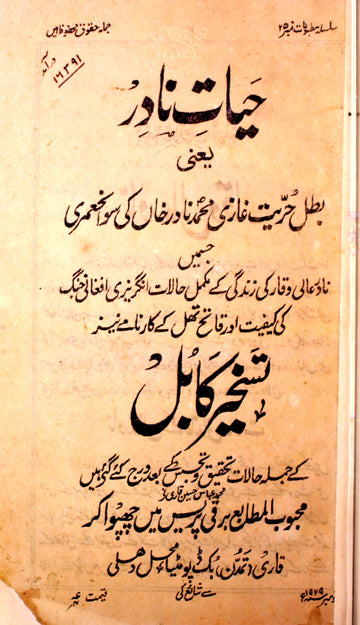 سلسلہ مطبوعات نمبر ۲۵
جملہ حقوق محفوظ ہیں
۱۶۳۹۱
حیاتِ نادِر
یعنی
بطلِ حُرّیت غازی محمد نادر خاں کی سوانحعمری
جسمیں
نادر عالی وقار کی زندگی کے مکمل حالات انگریزی افغانی جنگ
کی کیفیت اور فاتح تھل کے کارنامے نیز
تسخیرِ کابُل
کے جملہ حالات تحقیق و تجسس کے بعد درج کئے گئی ہیں
محمد عباس حسین قاری نے
محبوب المطابع برقی پریس میں چھپوا کر
قاری (تمدن) بُک ڈپو مٹیا محل دھلی
دسمبر ۱۹۲۹ء
سے شائع کی
قیمت